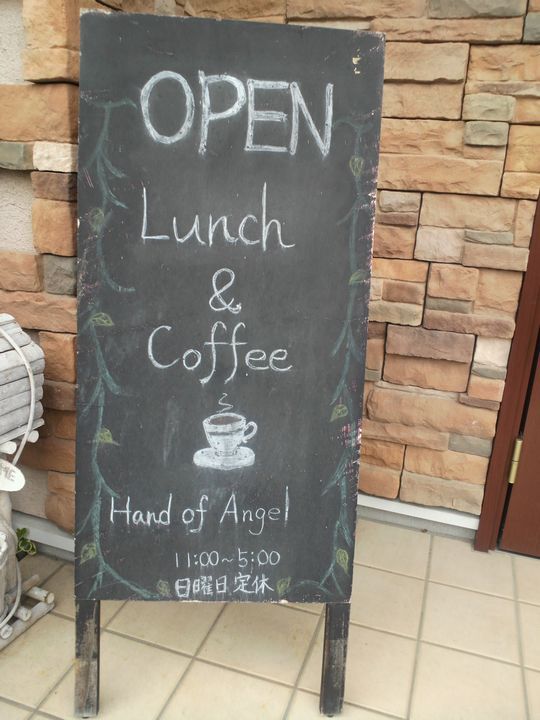 OPEN
Lunch
&
Coffee
Hand of Angel
11:00~5:00
日曜日定休